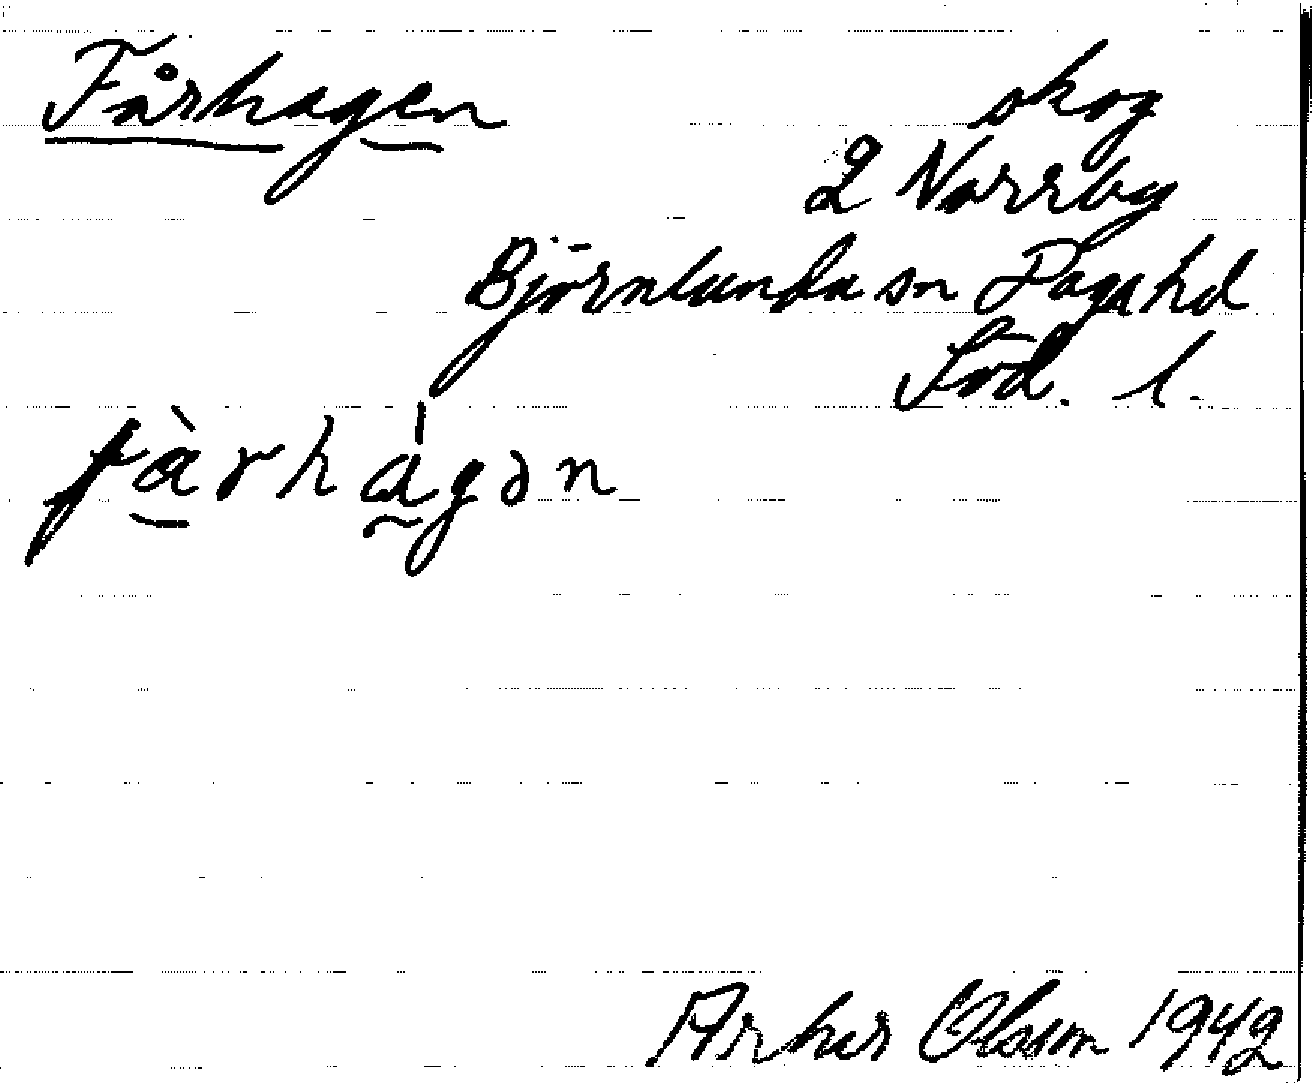 Fårhagen
skog
2 Norrby
Björnlunda sn Daga hd
Söd. l.
fàrhágən
Olsson 1942